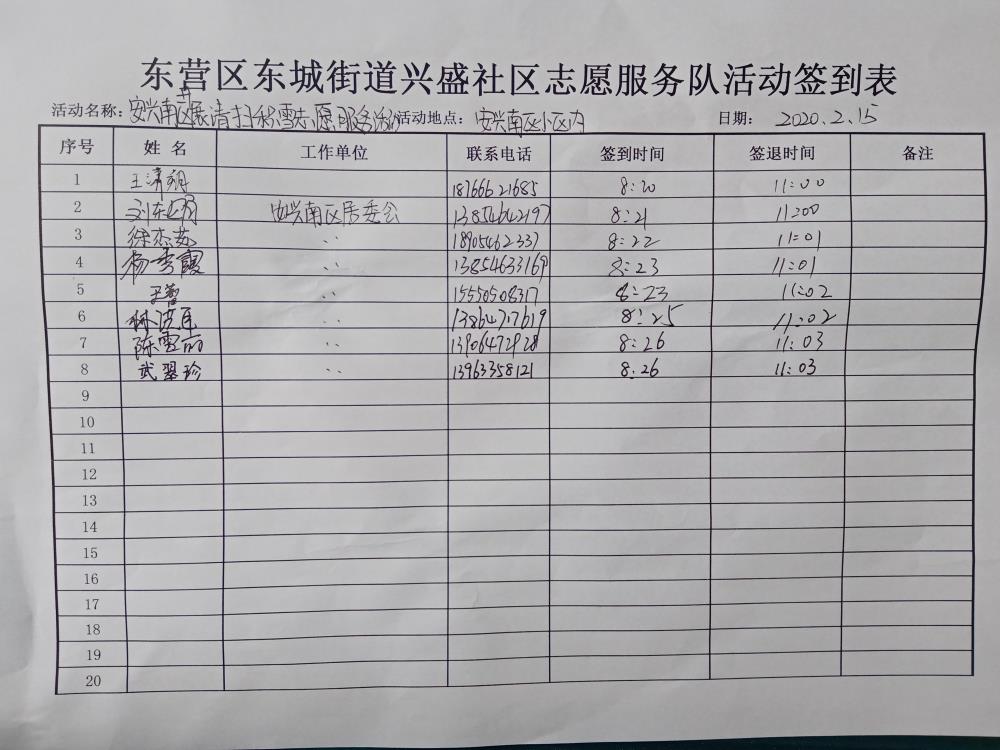 东营区东城街道兴盛社区志愿服务队活动签到表
活动名称：安兴南区开展清扫积雪志愿服务活动 活动地点：安兴南区小区内 日期：2020.2.15
序号 姓名 工作单位 联系电话 签到时间 签退时间 备注
1 王清翔 18766621685 8:20 11:00
2 刘东 安兴南区居委会 13854642197 8:21 11:00
3 徐杰苏 〃 18905462337 8:22 11:01
4 杨秀霞 〃 13854633169 8:23 11:01
5 王蕾 〃 15550508317 8:23 11:02
6 〃 13864717619 8:25 11:02
7 陈雪丽 〃 13906472928 8:26 11:03
8 武翠珍 〃 13963358121 8:26 11:03
9
10
11
12
13
14
15
16
17
18
19
20